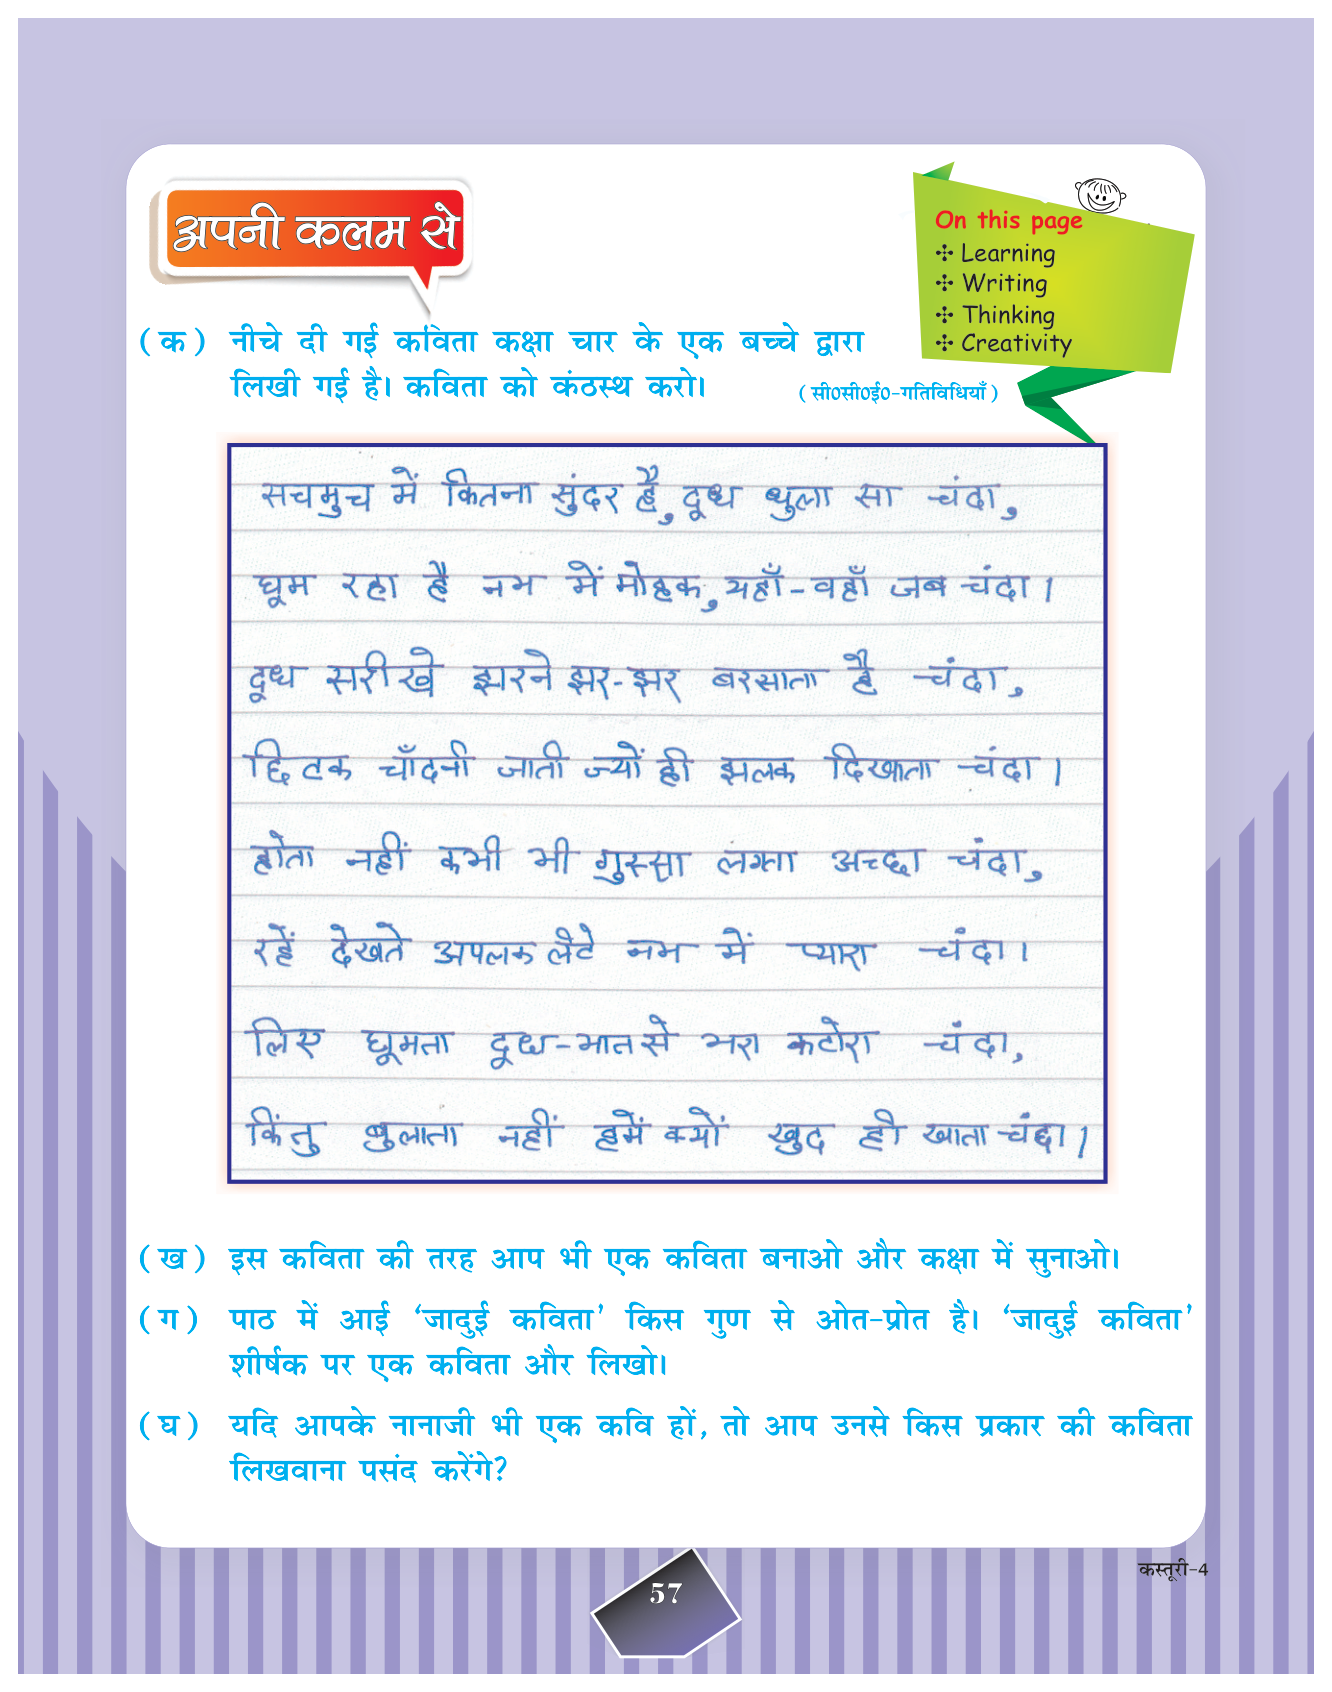 अपनी कलम से
On this page
✣ Learning
✣ Writing
✣ Thinking
✣ Creativity
(क) नीचे दी गई कविता कक्षा चार के एक बच्चे द्वारा
लिखी गई है। कविता को कंठस्थ करो।
(सी०सी०ई०-गतिविधियाँ)
सचमुच में कितना सुंदर है, दूध धुला सा चंदा,
घूम रहा है नभ में मोहक, यहाँ-वहाँ जब चंदा।
दूध सरीखे झरने झर-झर बरसाता है चंदा,
छिटक चाँदनी जाती ज्यों ही झलक दिखाता चंदा।
होता नहीं कभी भी गुस्सा लगता अच्छा चंदा,
रहें देखते अपलक लेटे नभ में प्यारा चंदा।
लिए घूमता दूध-भात से भरा कटोरा चंदा,
किंतु बुलाता नहीं हमें क्यों खुद ही खाता चंदा।
(ख) इस कविता की तरह आप भी एक कविता बनाओ और कक्षा में सुनाओ।
(ग) पाठ में आई ‘जादुई कविता’ किस गुण से ओत-प्रोत है। ‘जादुई कविता’
शीर्षक पर एक कविता और लिखो।
(घ) यदि आपके नानाजी भी एक कवि हों, तो आप उनसे किस प्रकार की कविता
लिखवाना पसंद करेंगे?
57
कस्तूरी-4